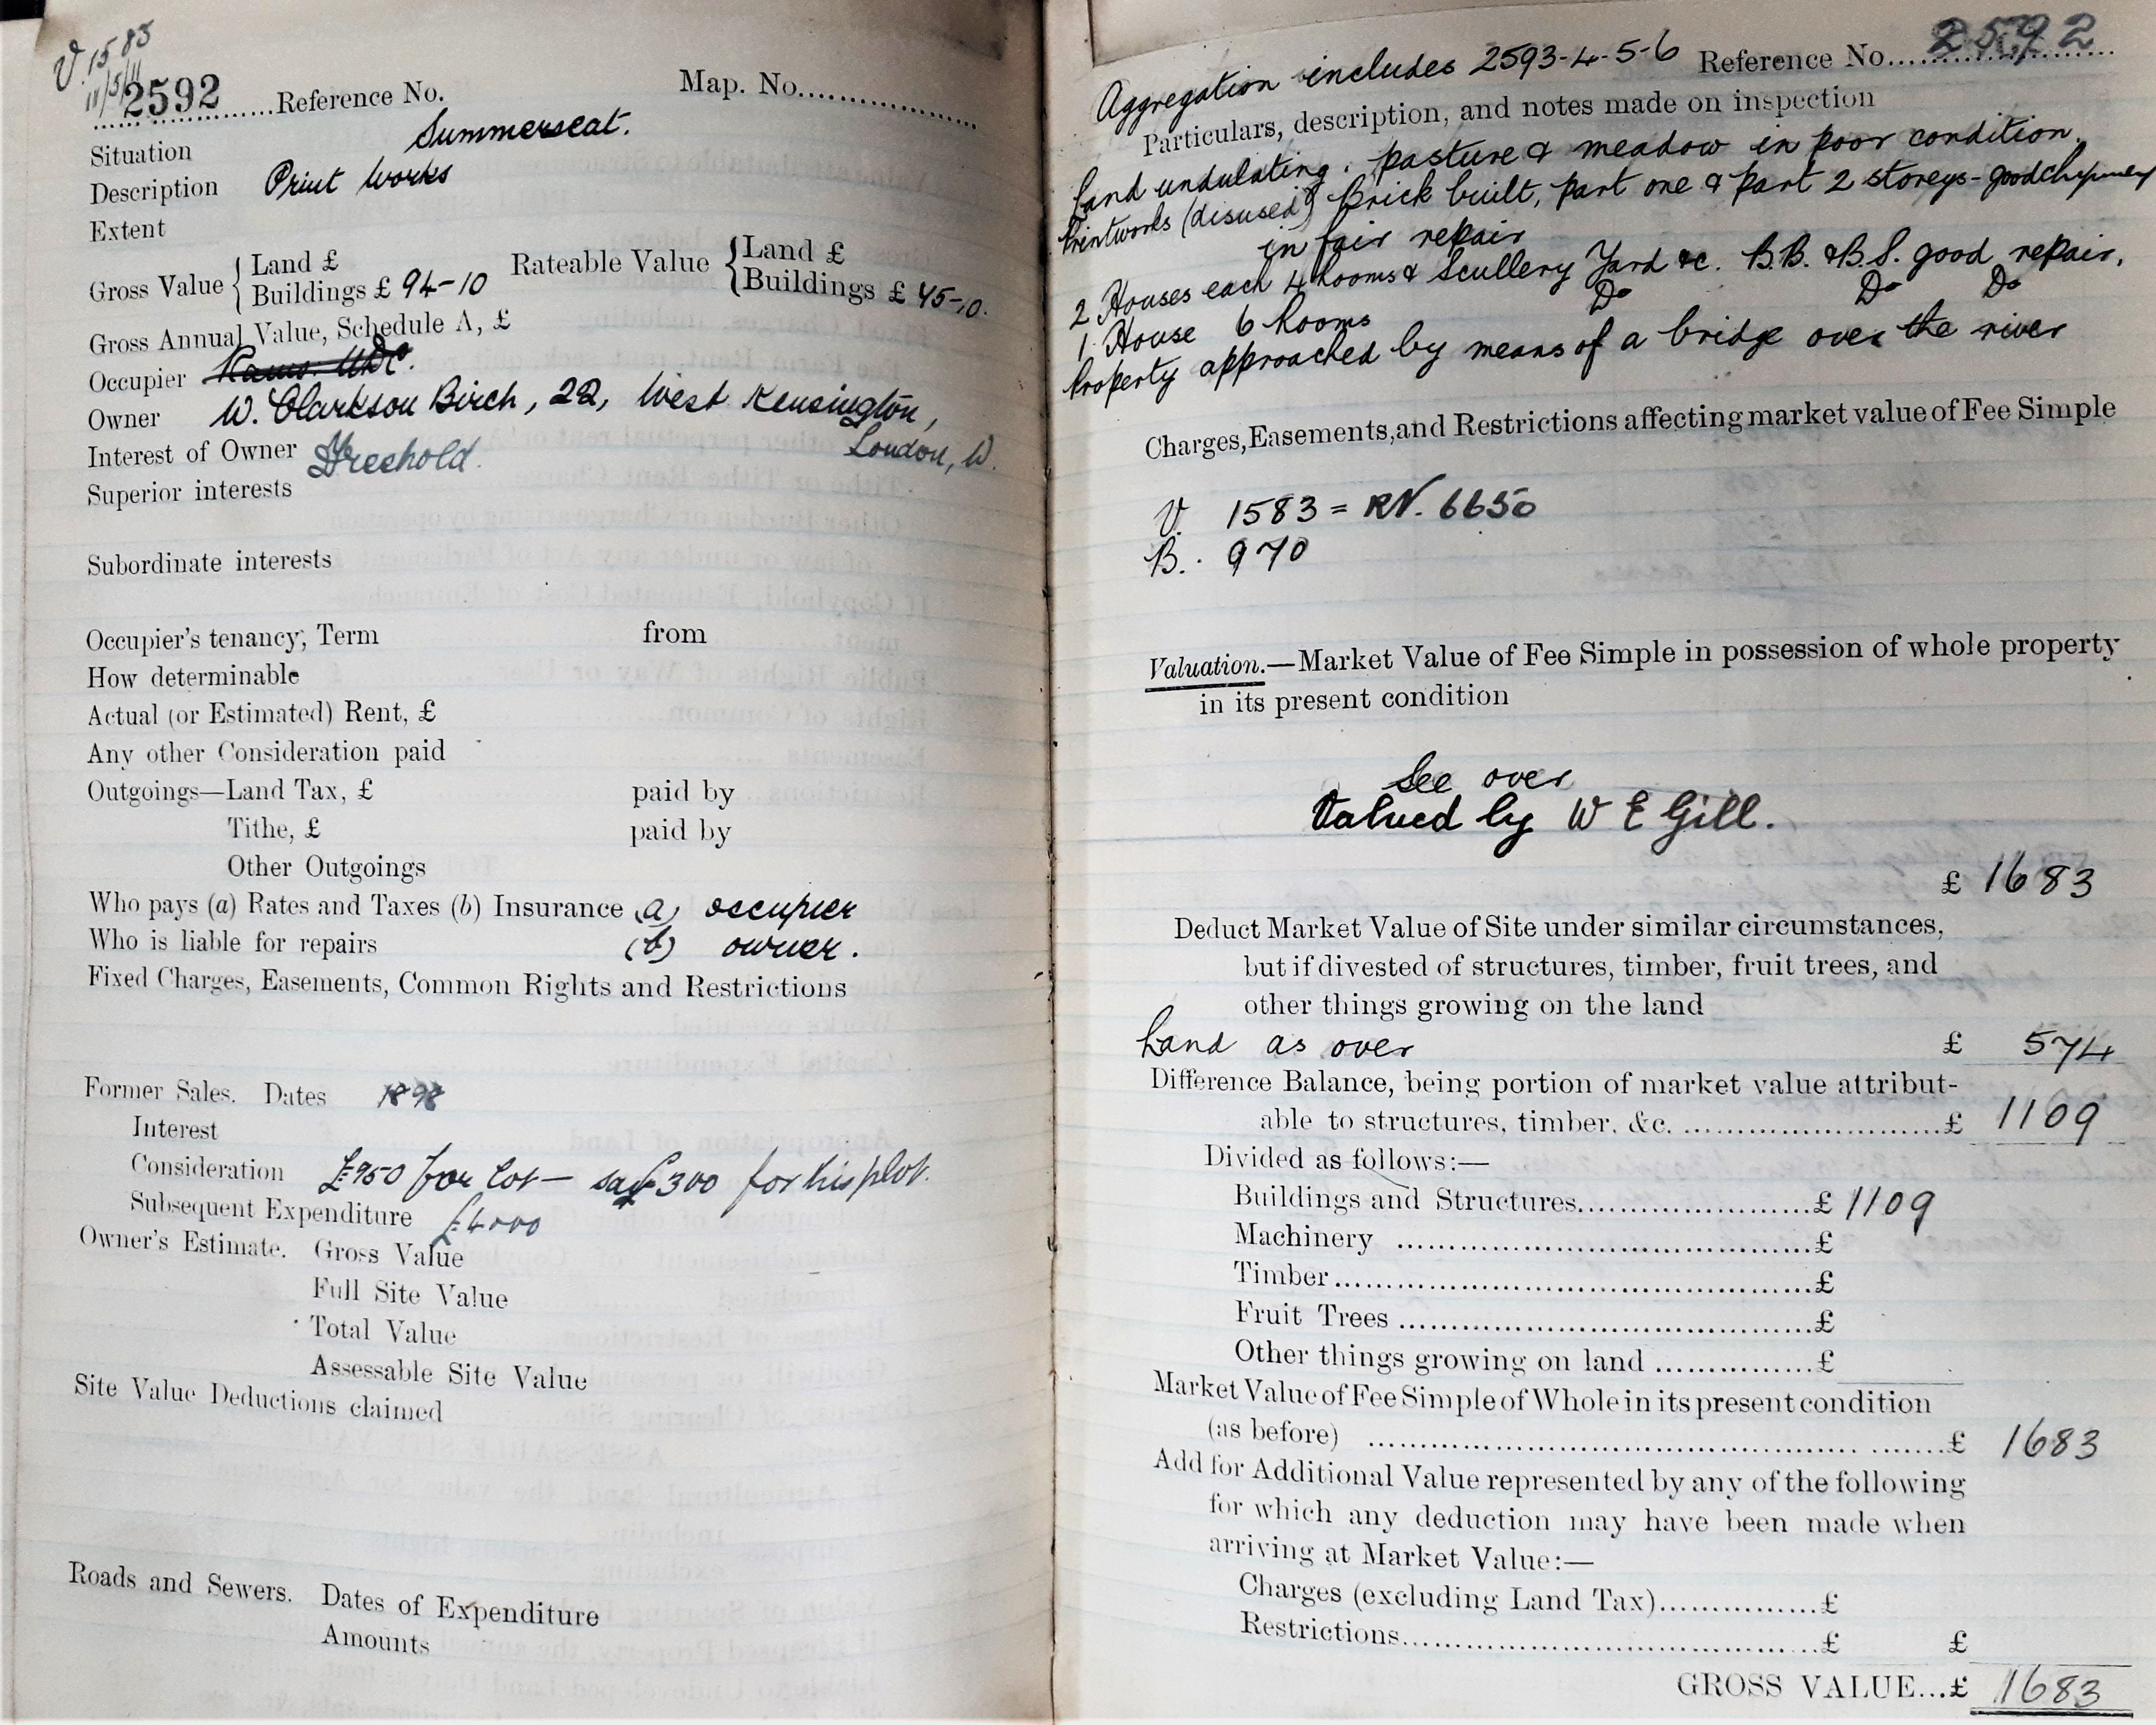 V. 1583
11/5/11
2592 Reference No. Map. No.
Situation Summerseat.
Description Print Works
Extent
Gross Value { Land £ Rateable Value { Land £
Buildings £ 94-10 Buildings £ 45-10.
Gross Annual Value, Schedule A, £
Occupier
Owner W. Clarkson Birch, 22, West Kensington,
London, W.
Interest of Owner Freehold.
Superior interests
Subordinate interests
Occupier's tenancy, Term from
How determinable
Actual (or Estimated) Rent, £
Any other Consideration paid
Outgoings—Land Tax, £ paid by
Tithe, £ paid by
Other Outgoings
Who pays (a) Rates and Taxes (b) Insurance (a) occupier
Who is liable for repairs (b) owner.
Fixed Charges, Easements, Common Rights and Restrictions
Former Sales. Dates 1898
Interest
Consideration £950 for lot — say £300 for his plot.
Subsequent Expenditure £4000
Owner's Estimate. Gross Value
Full Site Value
Total Value
Assessable Site Value
Site Value Deductions claimed
Roads and Sewers. Dates of Expenditure
Amounts
Aggregation includes 2593-4-5-6 Reference No. 2592
Particulars, description, and notes made on inspection
Land undulating. pasture & meadow in poor condition.
Printworks (disused) Brick built, part one & part 2 storeys - good chimney
in fair repair
2 Houses each 4 Rooms & Scullery Yard &c. B.B. & B.S. good repair.
1 House 6 Rooms Do Do Do
Property approached by means of a bridge over the river
Charges, Easements, and Restrictions affecting market value of Fee Simple
V. 1583 = RV. 6650
B. 970
Valuation.—Market Value of Fee Simple in possession of whole property
in its present condition
See over
Valued by W E Gill.
£ 1683
Deduct Market Value of Site under similar circumstances,
but if divested of structures, timber, fruit trees, and
other things growing on the land
Land as over £ 574
Difference Balance, being portion of market value attribut-
able to structures, timber, &c. £ 1109
Divided as follows:—
Buildings and Structures £ 1109
Machinery £
Timber £
Fruit Trees £
Other things growing on land £
Market Value of Fee Simple of Whole in its present condition
(as before) £ 1683
Add for Additional Value represented by any of the following
for which any deduction may have been made when
arriving at Market Value:—
Charges (excluding Land Tax) £
Restrictions £ £
GROSS VALUE...£ 1683